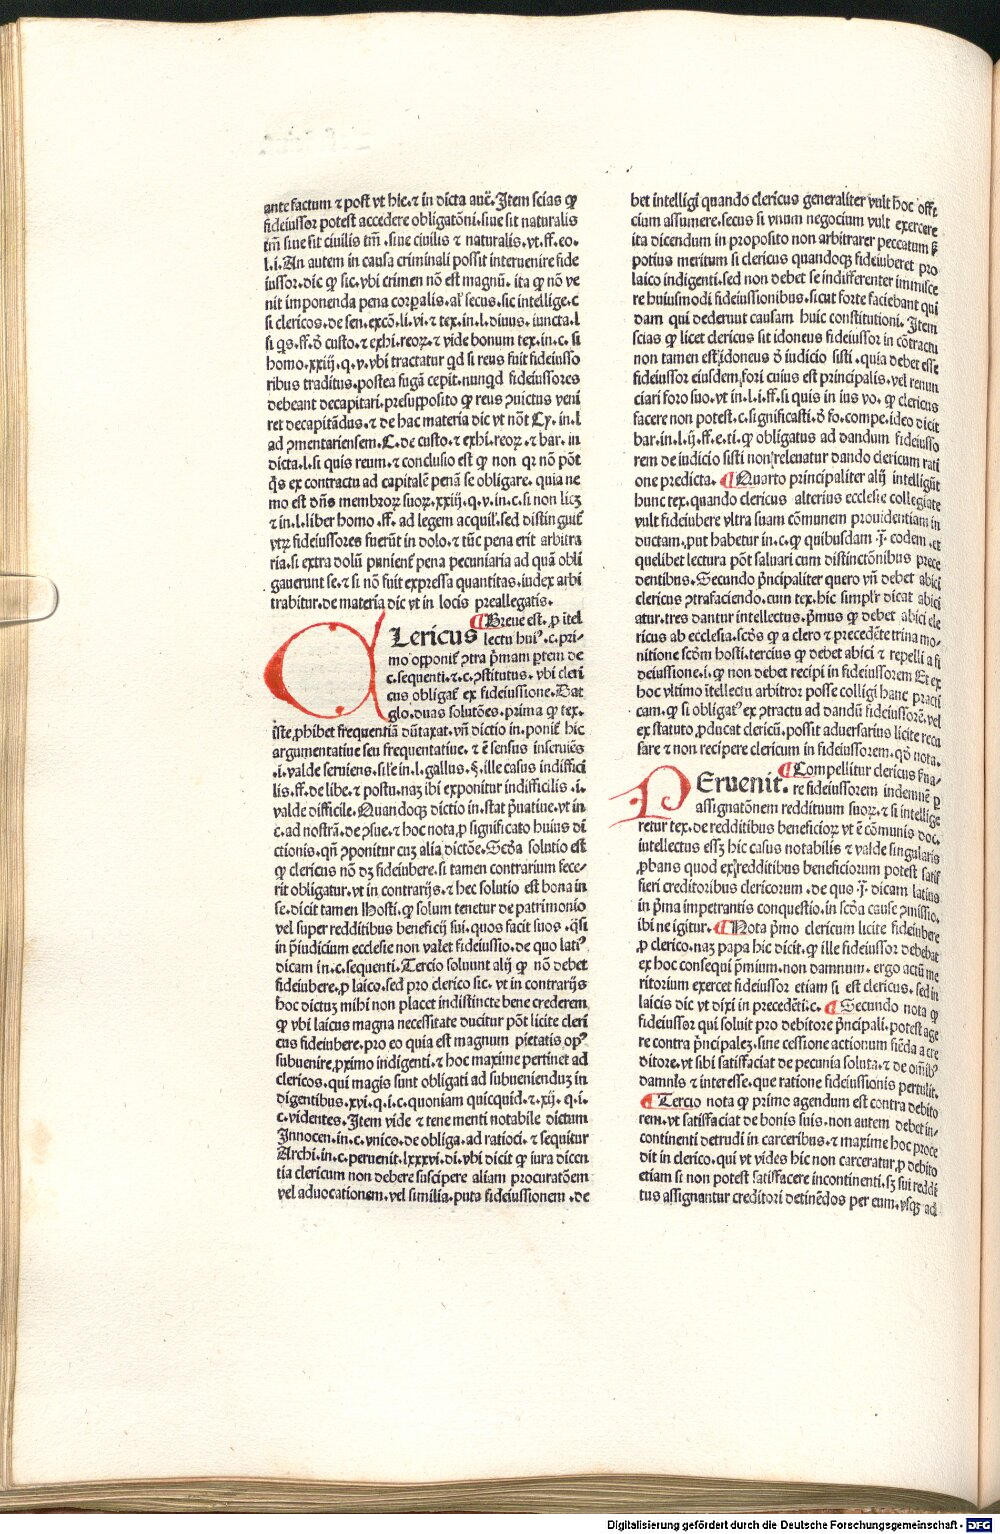 ante factum ⁊ post vt hic.⁊ in dicta auc̄. Item scias ꝙ
fideiussor potest accedere obligatōni.siue sit naturalis
tm̄ siue sit ciuilis tm̄ .siue ciuilis ⁊ naturalis.vt.ff.eo.
l.i.An autem in causa criminali possit interuenire fide
iussor.dic ꝙ sic.vbi crimen nō est magnū. ita ꝙ nō ve
nit imponenda pena corꝑalis.al' secus.sic intellige.c
si clericos.de sen.excō.li.vi.⁊ tex.in.l.diuus. iuncta.l
si qs.ff.ō custo.⁊ exhi.reoꝝ.⁊ vide bonum tex.in.c. si
homo.xxiij.q.v.vbi tractatur qd si reus fuit fideiusso
ribus traditus.postea fugā cepit.nunqd fideiussores
debeant decapitari.presupposito ꝙ reus ꝯuictus veni
ret decapitādus.⁊ de hac materia dic vt nōt Cy. in.l
ad ꝯmentariensem.C.de custo.⁊ exhi.reoꝝ.⁊ bar. in
dicta.l.si quis reum.⁊ conclusio est ꝙ non qr nō pōt
q̄s ex contractu ad capitalē penā se obligare. quia ne
mo est dn̄s membroꝝ suoꝝ.xxiij.q.v.in.c.si non licꝫ
⁊ in.l.liber homo .ff. ad legem acquil.sed distinguit̄
vtꝝ fideiussores fuerūt in dolo.⁊ tūc pena erit arbitra
ria.si extra dolū punient̄ pena pecuniaria ad quā obli
gauerunt se.⁊ si nō fuit expressa quantitas.iudex arbi
trabitur.de materia dic vt in locis preallegatis.
¶Breue est.ꝓ ītel
CLericus lectu huiꝰ.c.pri-
mo opponit̄ ꝯtra p̄mam ꝑtem de
c.sequenti.⁊.c.ꝯstitutus. vbi cleri
cus obligat̄ ex fideiussione.Dat
glo.duas solutōes.prima ꝙ tex.
iste ꝓhibet frequentiā dūtaxat.vn̄ dictio in.ponit̄ hic
argumentatiue seu frequentatiue. ⁊ ē sensus inseruiēs
.i.valde seruiens.sil'e in.l.gallus.§.ille casus indiffici
lis.ff.de libe.⁊ postu.naꝫ ibi exponitur indifficilis .i.
valde difficile.Quandoqꝫ dictio in.stat p̄uatiue.vt in
c.ad nostrā.de ꝯsue.⁊ hoc nota.ꝓ significato huius di
ctionis.qn̄ ꝯponitur cuꝫ alia dictōe.Scd̄a solutio est
ꝙ clericus nōn dꝫ fideiubere.si tamen contrarium fece-
rit obligatur.vt in contrarijs.⁊ hec solutio est bona in
se.dicit tamen Hosti.ꝙ solum tenetur de patrimonio
vel super redditibus beneficij sui.quos facit suos .q̄si
in p̄iudicium ecclesie non valet fideiussio.de quo latiꝰ
dicam in.c.sequenti.Tercio soluunt alij ꝙ nō debet
fideiubere.ꝓ laico.sed pro clerico sic. vt in contrarijs
hoc dictuꝫ mihi non placet indistincte bene crederem
ꝙ vbi laicus magna necessitate ducitur pōt licite cleri
cus fideiubere.pro eo quia est magnum pietatis opꝰ
subuenire.ꝓximo indigenti.⁊ hoc maxime pertinet ad
clericos.qui magis sunt obligati ad subueniendum in
digentibus.xvi.q.i.c.quoniam quicquid.⁊.xij. q.i.
c.videntes.Item vide ⁊ tene menti notabile dictum
Innocen.in.c.vnico.de obliga.ad ratioci. ⁊ sequitur
Archi.in.c.peruenit.lxxxvi.di.vbi dicit ꝙ iura dicen
tia clericum non debere suscipere aliam procuratōem
vel aduocationem.vel similia.puta fideiussionem .de
bet intelligi quando clericus generaliter vult hoc offi
cium assumere.secus si vnum negocium vult exercere
ita dicendum in proposito non arbitrarer peccatum ꝗ̄
potius meritum si clericus quandoqꝫ fideiuberet pro
laico indigenti.sed non debet se indifferenter immisce
re huiusmodi fideiussionibus.sicut forte faciebant qui
dam qui dederunt causam huic constitutioni. Item
scias ꝙ licet clericus sit idoneus fideiussor in cōtractu
non tamen est idoneus ō iudicio sisti .quia debet esse
fideiussor eiusdem fori cuius est principalis.vel renun
ciari foro suo.vt in.l.i.ff.si quis in ius vo. ꝙ clericus
facere non potest.c.significasti.ō fo.compe.ideo dicit
bar.in.l.ij.ff.e.ti.ꝙ obligatus ad dandum fideiusso
rem de iudicio sisti non releuatur dando clericum rati
one predicta.¶Quarto principaliter alij intelligūt
hunc tex.quando clericus alterius ecclesie collegiate
vult fideiubere vltra suam cōmunem prouidentiam in
ductam.put habetur in.c.ꝙ quibusdam .j. eodem .et
quelibet lectura pōt saluari cum distinctōnibus prece
dentibus.Secundo p̄ncipaliter quero vn̄ debet abici
clericus ꝯtrafaciendo.cum tex.hic simpl'r dicat abici
atur.tres dantur intellectus.p̄mus ꝙ debet abici cle
ricus ab ecclesia.scd̄s ꝙ a clero ⁊ precedēte trina mo-
nitione scd̄m hosti.tercius ꝙ debet abici ⁊ repelli a fi
deiussione.i.ꝙ non debet recipi in fideiussorem Et ex
hoc vltimo ītellectu arbitror posse colligi hanc practi
cam.ꝙ si obligatꝰ ex ꝯtractu ad dandū fideiussorē.vel
ex statuto ꝓducat clericū.possit aduersarius licite recu
sare ⁊ non recipere clericum in fideiussorem.qō nota.
¶Compellitur clericus ẜua-
PEruenit. re fideiussorem indemnē ꝑ
assignatōnem reddituum suoꝝ.⁊ si intellige
retur tex.de redditibus beneficioꝝ vt ē cōmunis doc.
intellectus essꝫ hic casus notabilis ⁊ valde singularis
ꝓbans quod ex redditibus beneficiorum potest satis
fieri creditoribus clericorum .de quo .j. dicam latius
in p̄ma impetrantis conquestio.in scd̄a cause ꝯmissio.
ibi ne igitur.¶Nota p̄mo clericum licite fideiubere
ꝓ clerico.naꝫ papa hic dicit.ꝙ ille fideiussor debebat
ex hoc consequi p̄mium.non damnum. ergo actū me
ritorium exercet fideiussor etiam si est clericus. sed in
laicis dic vt dixi in precedēti.c. ¶Secundo nota ꝙ
fideiussor qui soluit pro debitore p̄ncipali.potest age
re contra p̄ncipaleꝫ.sine cessione actionum fiēda a cre
ditore.vt sibi satisfaciat de pecunia soluta.⁊ de om̄ibꝰ
damnis ⁊ interesse.que ratione fideiussionis pertulit.
¶Tercio nota ꝙ primo agendum est contra debito
rem.vt satisfaciat de bonis suis.non autem debet in-
continenti detrudi in carceribus.⁊ maxime hoc proce
dit in clerico.qui vt vides hic non carceratur.ꝓ debito
etiam si non potest satisfacere incontinenti.sꝫ sui reddi
tus assignantur creditori detinēdos per eum.vsqꝫ ad
Digitalisierung gefördert durch die Deutsche Forschungsgemeinschaft - DFG